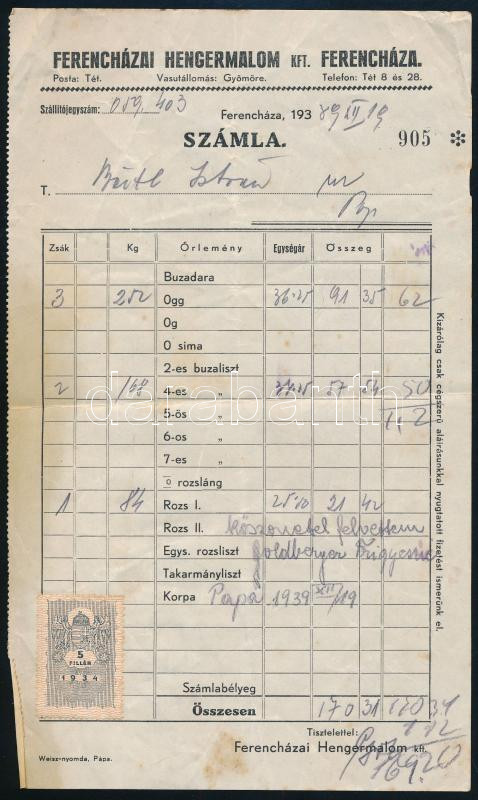 FERENCHÁZAI HENGERMALOM KFT. FERENCHÁZA.
Posta: Tét. Vasutállomás: Gyömöre. Telefon: Tét 8 és 28.
Szállitójegyszám: 059.403
Ferencháza, 1939 XII 19
SZÁMLA. 905 ✻
T. István úr
Zsák Kg Őrlemény Egységár Összeg
Buzadara
3 252 0gg 36.25 91 35 62
0g
0 sima
2-es buzaliszt
2 160 4-es „ 57 54 50
5-ös „ 2
6-os „
7-es „
0 rozsláng
1 84 Rozs I. 25.50 21 42
Rozs II. köszönettel felvettem
Egys. rozsliszt Goldberger
Takarmányliszt
Korpa Pápa 1939 XII/19
Számlabélyeg
Összesen 170 31 170 31
1 12
Tisztelettel:
Ferencházai Hengermalom kft.
Kizárólag csak cégszerű aláirásunkkal nyugtatott fizetést ismerünk el.
5
FILLÉR
1934
Weisz-nyomda, Pápa.
darabanth